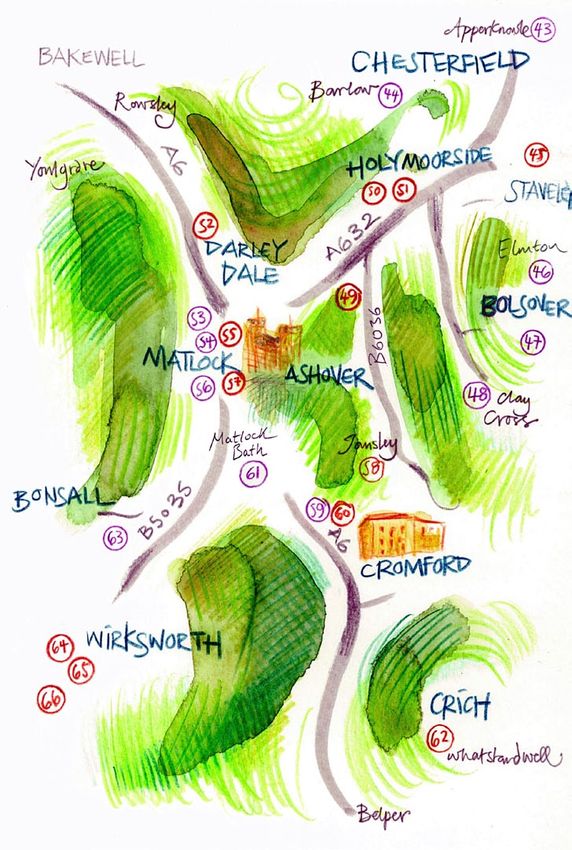 Apperknowle 43
BAKEWELL
CHESTERFIELD
Rowsley
Barlow 44
A6
HOLYMOORSIDE
45
Youlgrave
50 51
STAVELEY
52
A632
Elmton
DARLEY
DALE
46
49
BOLSOVER
53
54 55
B6036
47
MATLOCK
ASHOVER
56 57
48 Clay
Cross
Matlock
Bath
61
Tansley
58
BONSALL
B5035
59 60
63
A6
CROMFORD
WIRKSWORTH
64
65
66
CRICH
62
whatstandwell
Belper